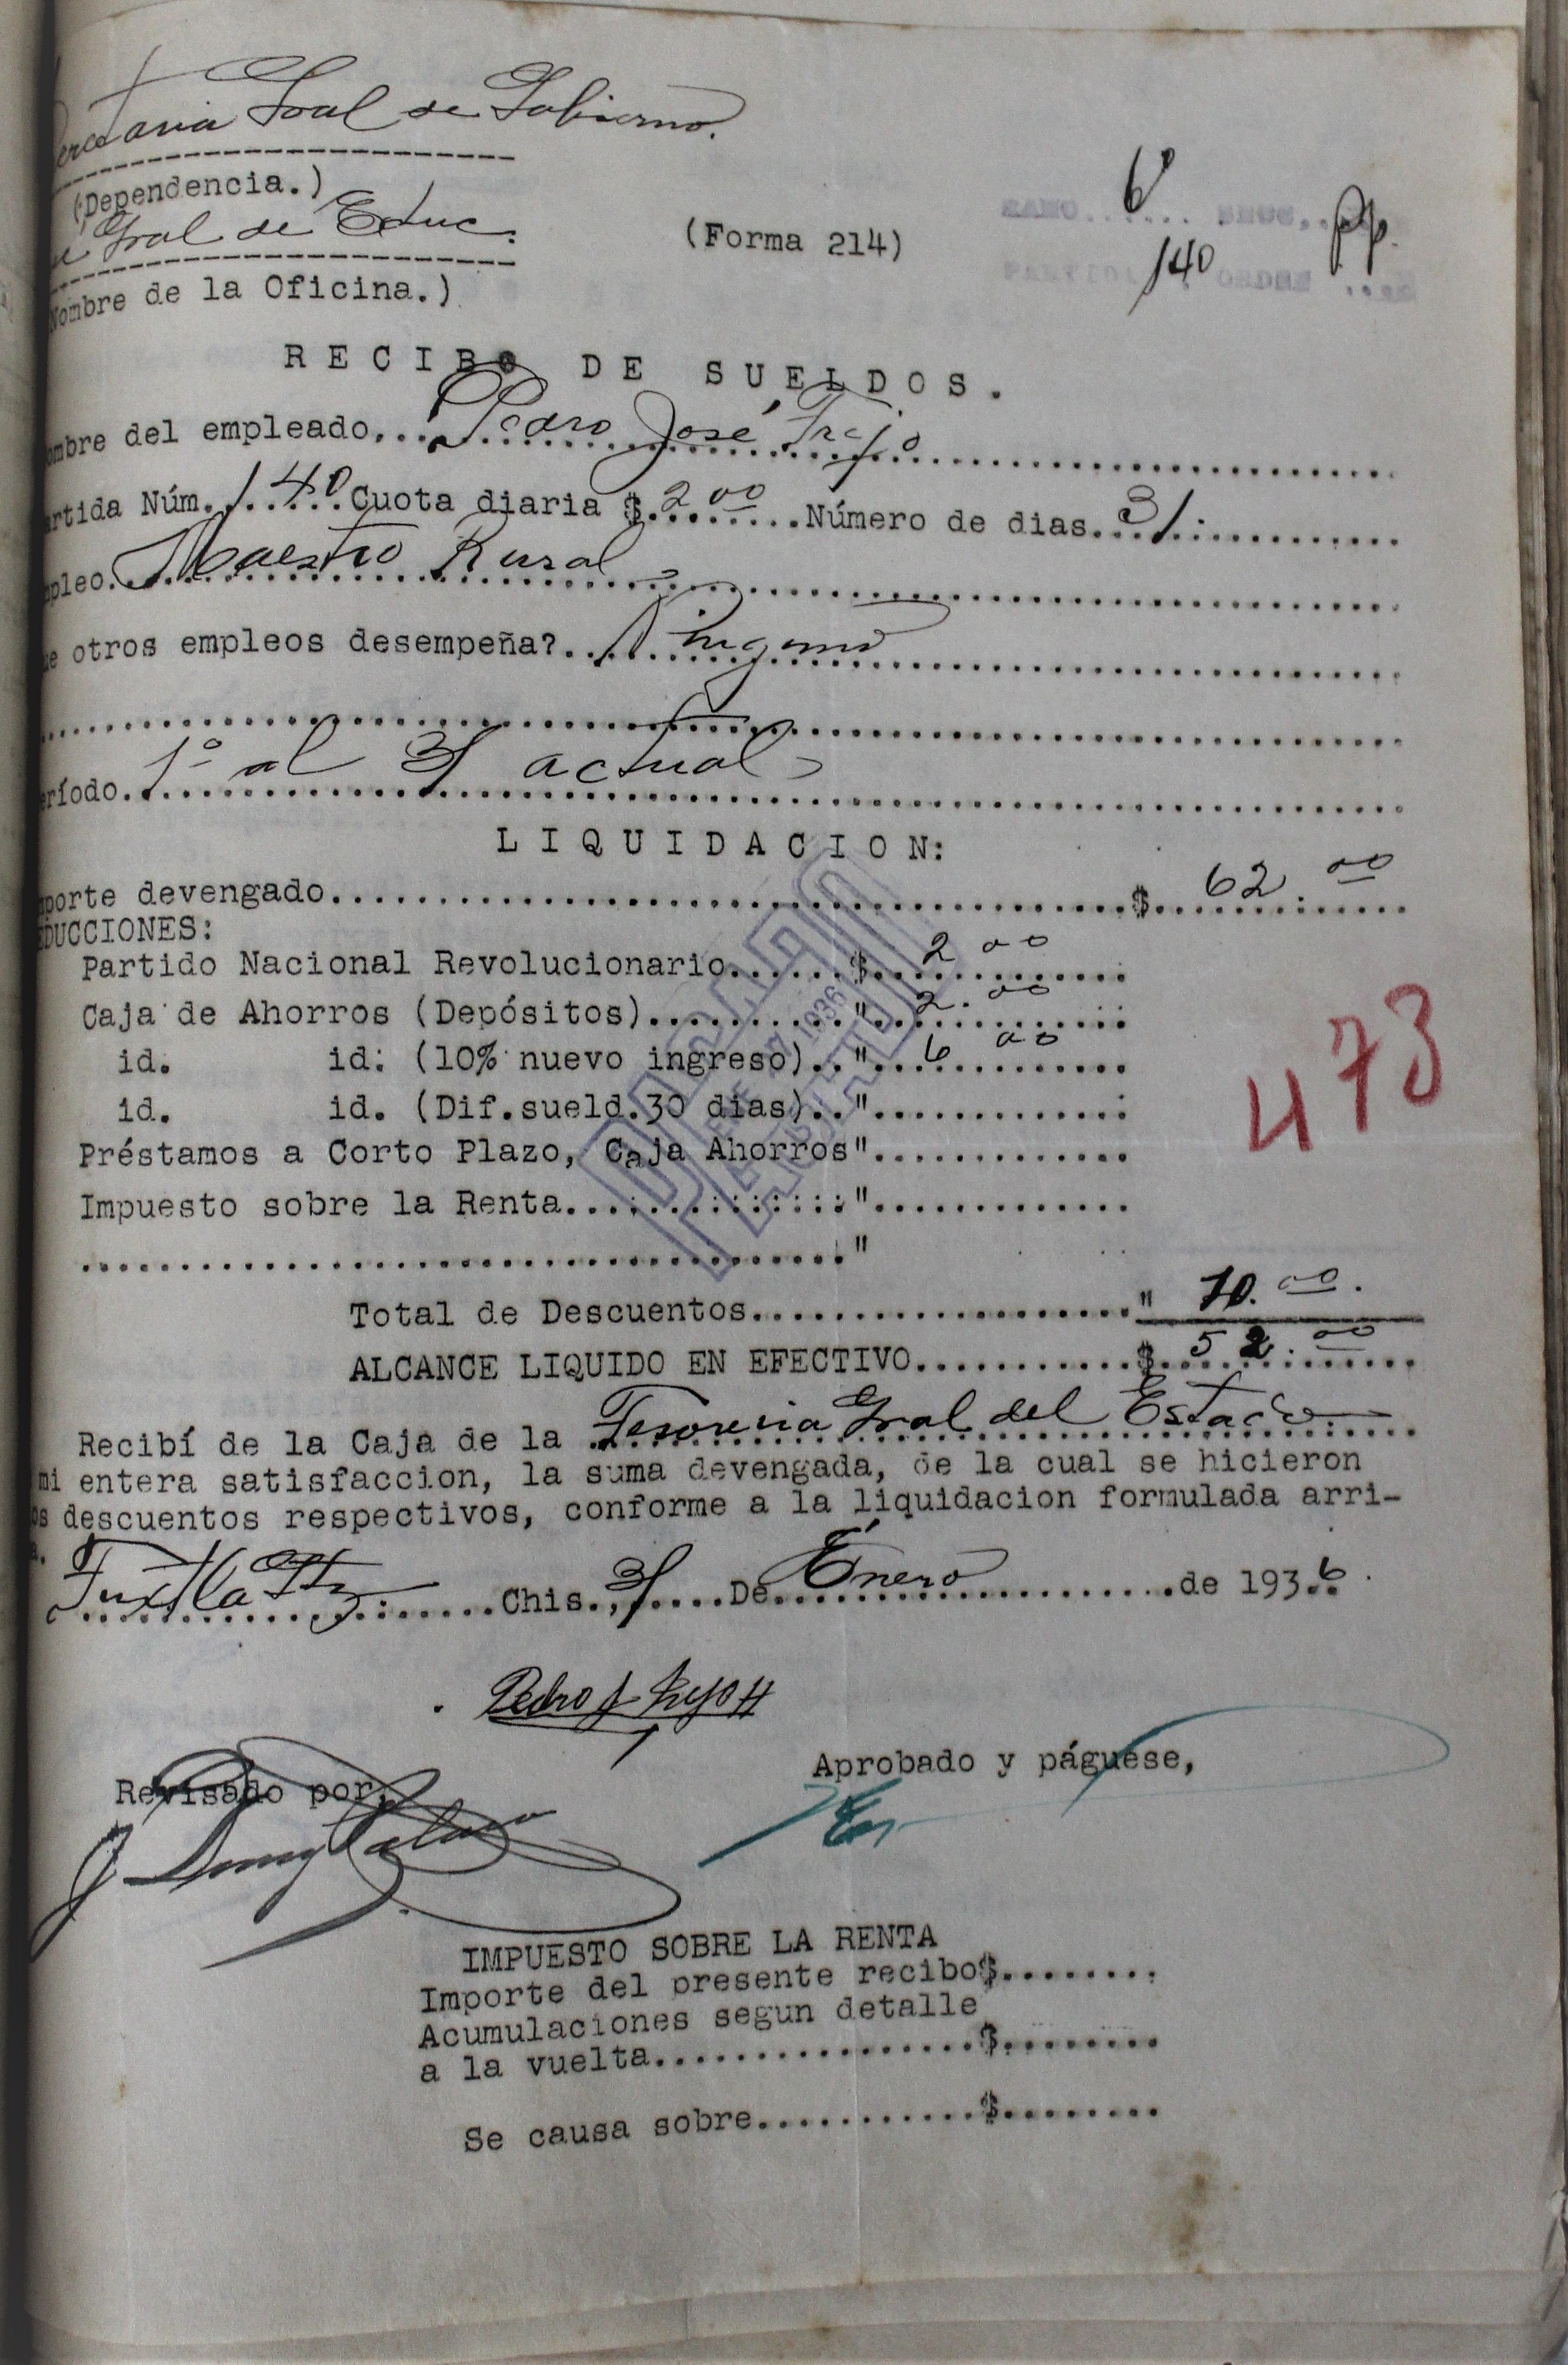 Gral de Gobierno.
(Dependencia.)
Gral de Educ.
Nombre de la Oficina.)
(Forma 214)
RAMO...... SECC...
6
140
pp.
RECIBO DE SUELDOS.
ombre del empleado,... Pedro José Trejo
artida Núm. 140 Cuota diaria $. 2 00 Número de dias. 31.
pleo. Maestro Rural
e otros empleos desempeña?. Ninguno
eríodo. 1º al 31 actual
LIQUIDACION:
mporte devengado.................... $. 62.00
DUCCIONES:
Partido Nacional Revolucionario...... $. 2 00
Caja de Ahorros (Depósitos).......... " 2.00
id. id. (10% nuevo ingreso).. " 6 00
id. id. (Dif.sueld.30 dias).. "
Préstamos a Corto Plazo, Caja Ahorros "
Impuesto sobre la Renta.............. "
..................................... "
473
Total de Descuentos................... " 10.00.
ALCANCE LIQUIDO EN EFECTIVO........... $. 52.00
Recibí de la Caja de la Tesoreria Gral del Estado.
mi entera satisfaccion, la suma devengada, de la cual se hicieron
os descuentos respectivos, conforme a la liquidacion formulada arri-
a.
Tuxtla Gtz ...... Chis., 31 .... De Enero ...... de 1936.
Pedro J Trejo H
Revisado por,
Aprobado y páguese,
IMPUESTO SOBRE LA RENTA
Importe del presente recibo $.........
Acumulaciones segun detalle
a la vuelta................ $.........
Se causa sobre........... $.........